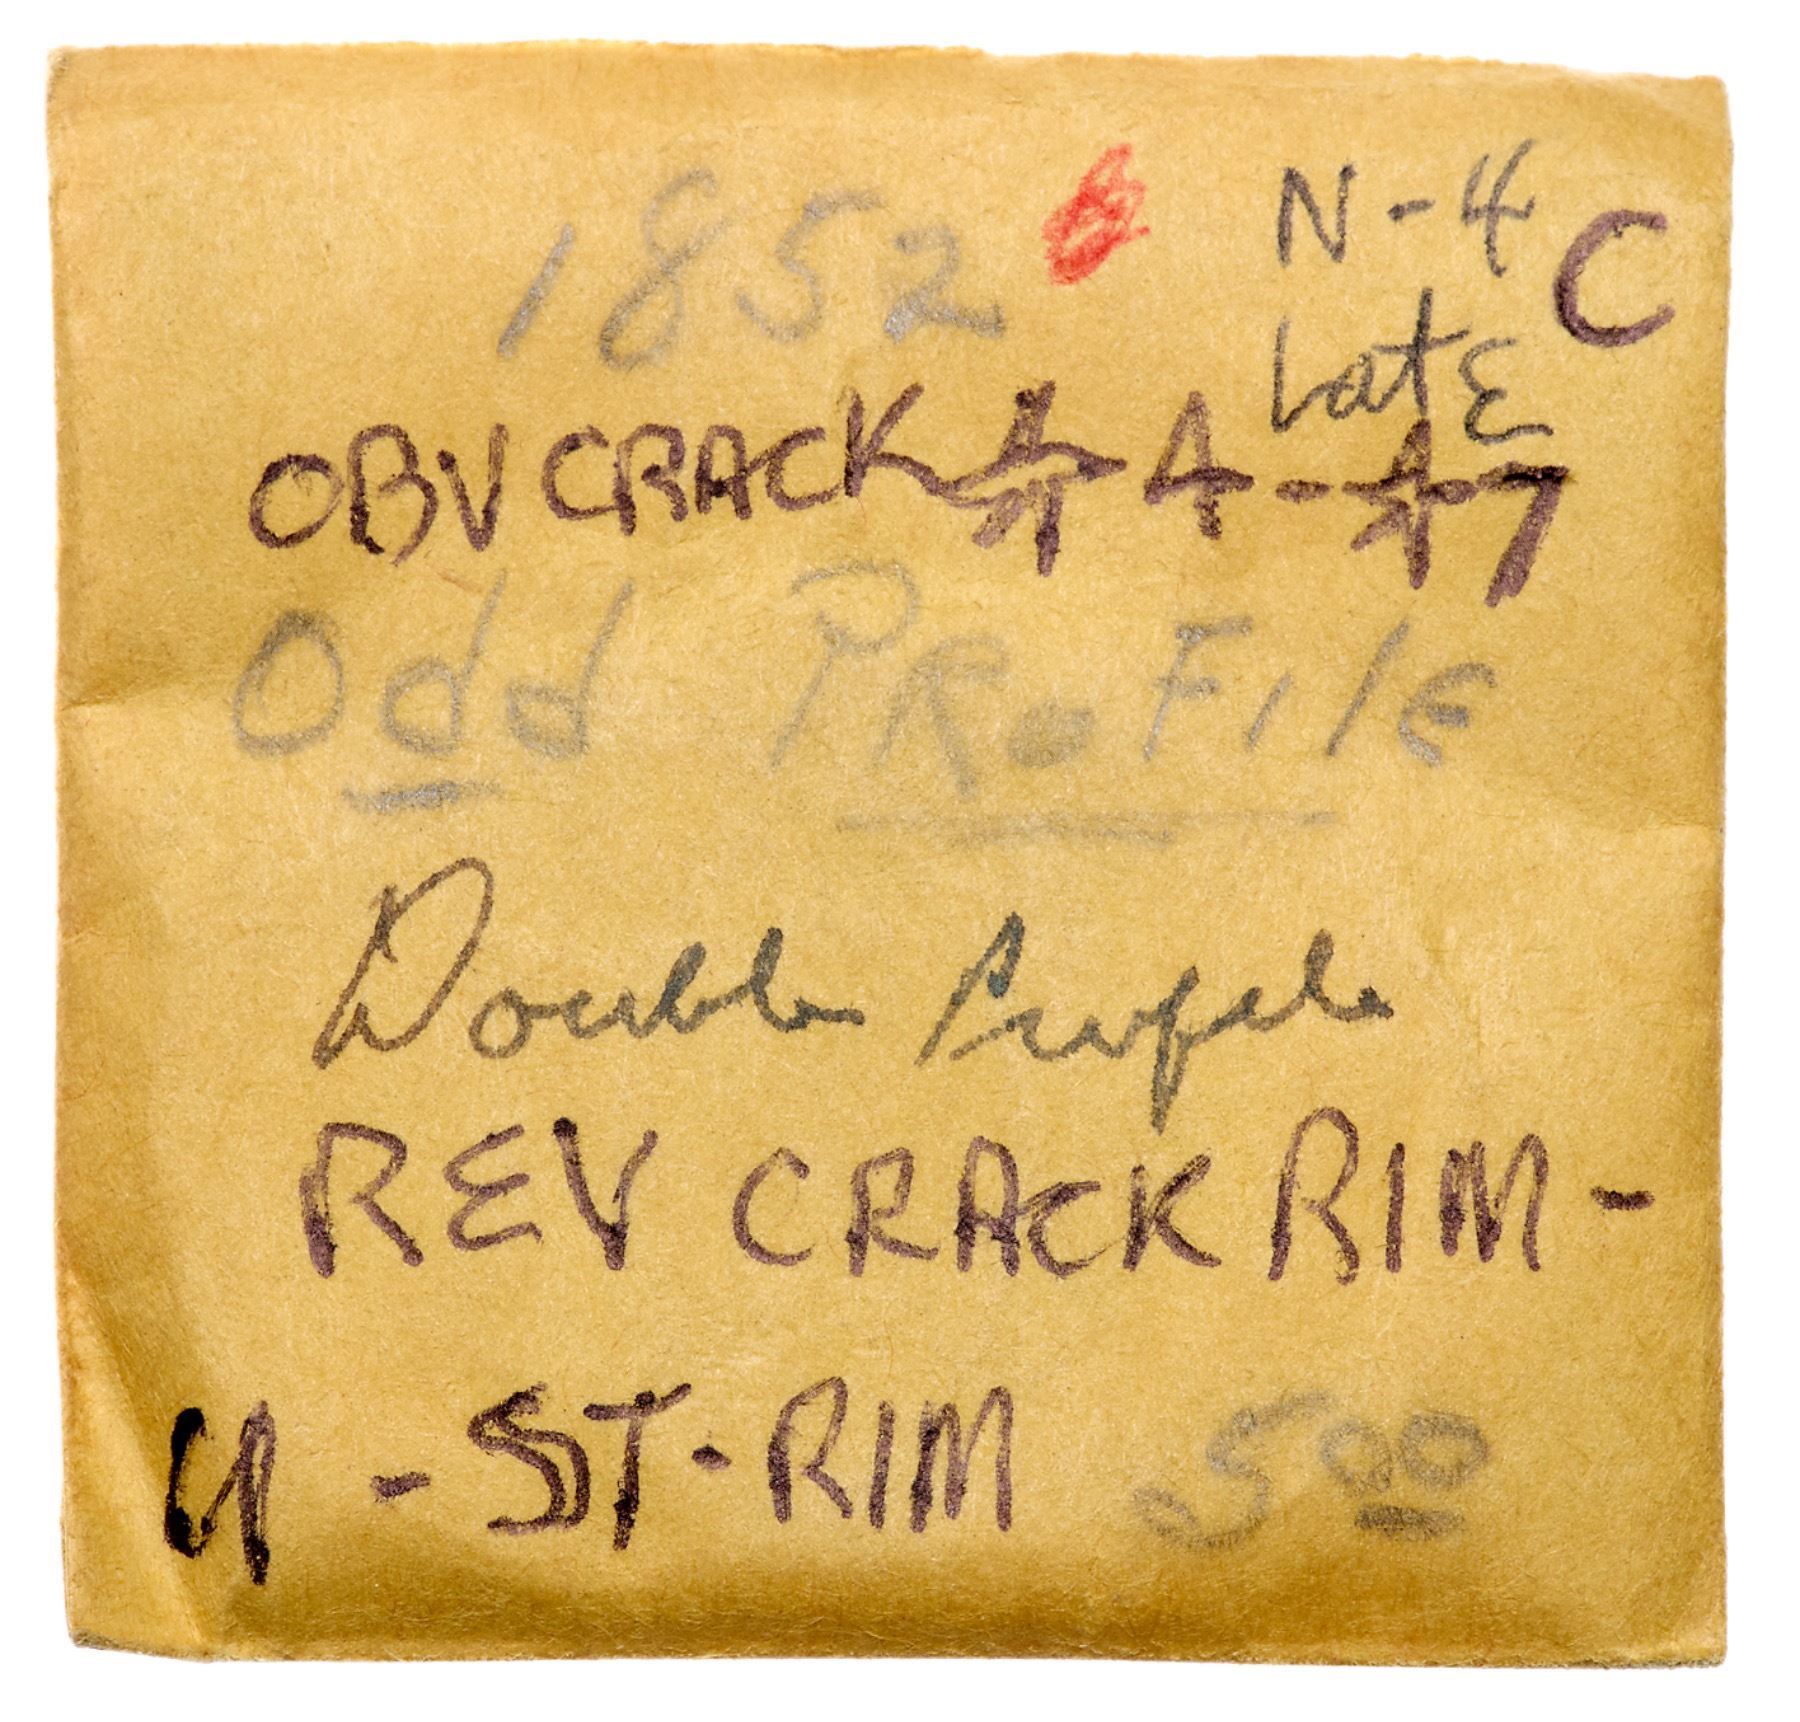 1852 N-4 C
Late
OBV CRACK ☆ ☆ - ☆ - 7
Odd PRoFilE
Double Profile
REV CRACK RIM -
U - ST - RIM 5 00